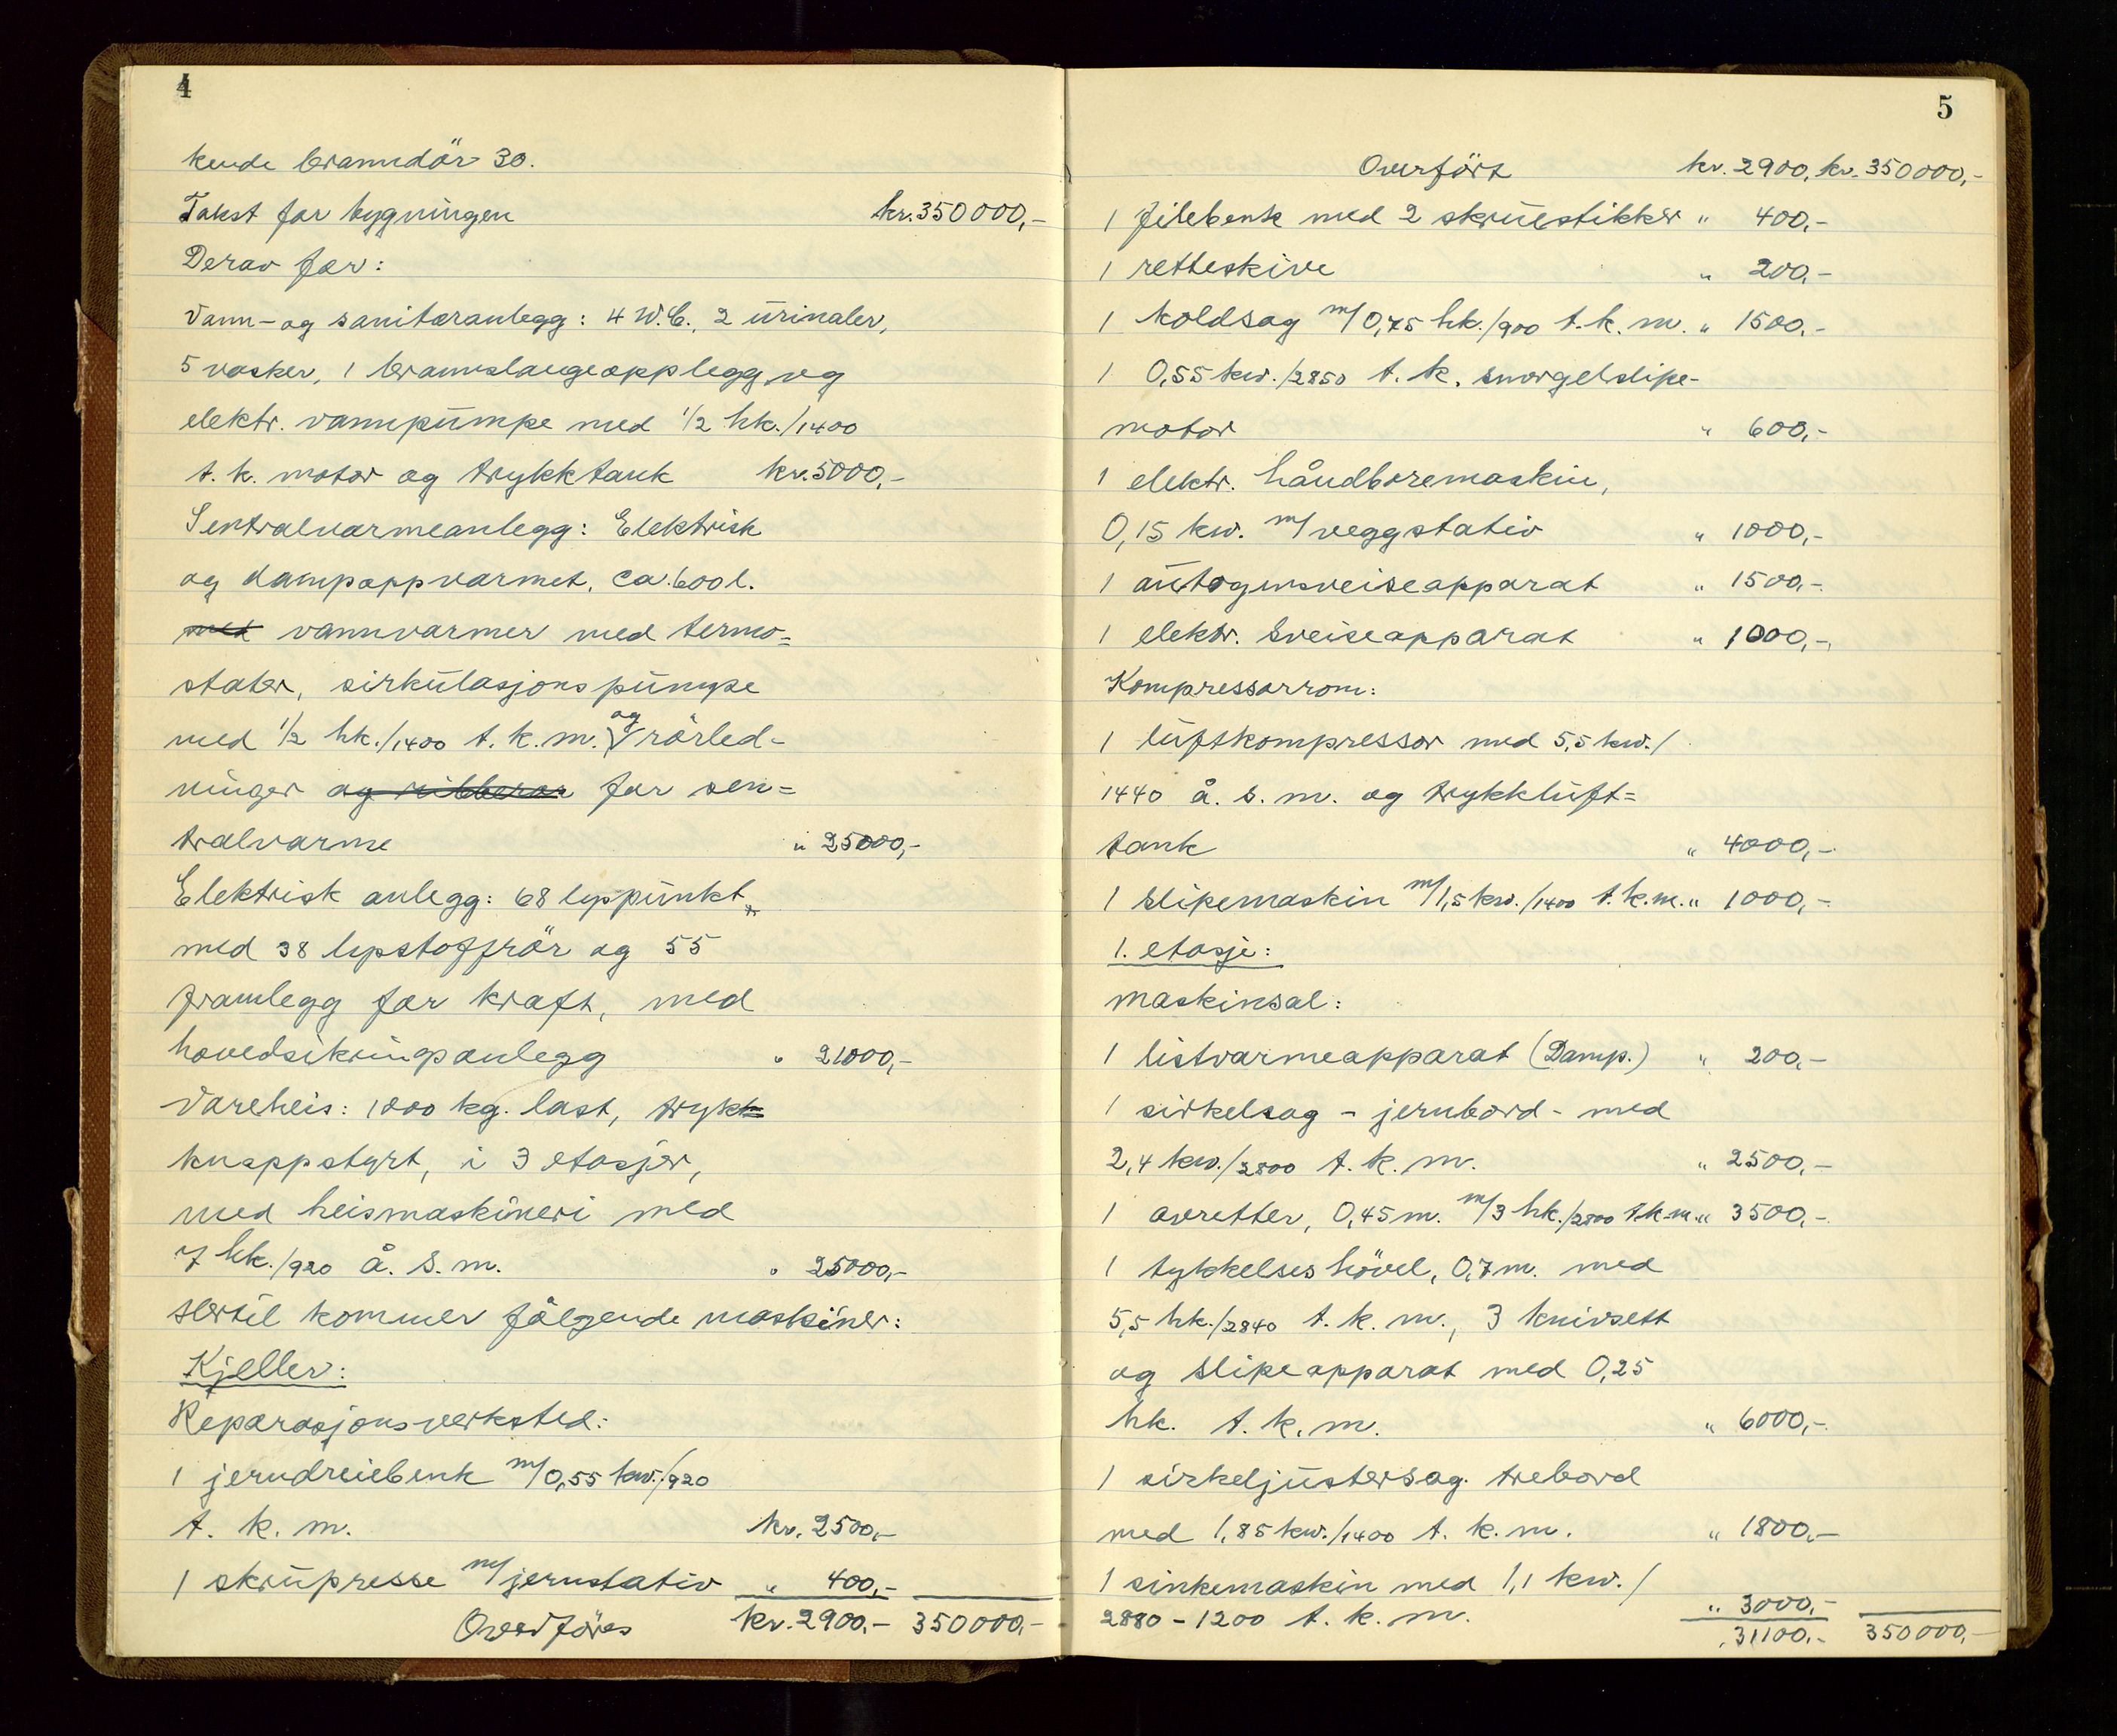 4
kende branndör 30.
Takst for bygningen kr. 350000,-
Derav for:
Vann- og sanitæranlegg: 4 W.C., 2 urinaler,
5 vasker, 1 brannslangeopplegg og
elektr. vannpumpe med 1/2 hk./1400
t. k. motor og trykktank kr. 5000,-
Sentralvarmeanlegg: Elektrisk
og dampoppvarmet, ca. 600 l.
med vannvarmer med termo=
stater, sirkulasjonspumpe
med 1/2 hk./1400 t. k. m. og rörled-
ninger og ribberör for sen=
tralvarme " 25000,-
Elektrisk anlegg: 68 lyspunkt,
med 38 lysstoffrör og 55
framlegg for kraft, med
hovedsikringsanlegg " 21000,-
Vareheis: 1000 kg. last, trykk=
knappstyrt, i 3 etasjer,
med heismaskineri med
7 hk./920 å. s. m. " 25000,-
Hertil kommer fölgende maskiner:
Kjeller:
Reparasjonsverksted:
1 jerndreiebenk m/0,55 kw./920
t. k. m. kr. 2500,-
1 skrupresse m/jernstativ " 400,-
Overföres kr. 2900,- 350000,-
5
Overfört kr. 2900, kr. 350000,-
1 filebenk med 2 skruestikker " 400,-
1 retteskive " 200,-
1 koldsag m/0,75 hk./900 t. k. m. " 1500,-
1 0,55 kw./2850 t. k. smergelslipe-
motor " 600,-
1 elektr. håndboremaskin,
0,15 kw. m/veggstativ " 1000,-
1 autogensveiseapparat " 1500,-
1 elektr. sveiseapparat " 1000,-
Kompressorrom:
1 luftkompressor med 5,5 kw./
1440 å. s. m. og trykkluft=
tank " 4000,-
1 slipemaskin m/1,5 kw./1400 t. k. m. " 1000,-
1. etasje:
Maskinsal:
1 listvarmeapparat (Damp.) " 200,-
1 sirkelsag - jernbord - med
2,4 kw./2800 t. k. m. " 2500,-
1 avretter, 0,45 m. m/3 hk./2800 t. k. m. " 3500,-
1 tykkelseshövel, 0,7 m. med
5,5 hk./2840 t. k. m., 3 knivsett
og slipeapparat med 0,25
hk. t. k. m. " 6000,-
1 sirkeljustersag. trebord
med 1,85 kw./1400 t. k. m. " 1800,-
1 sinkemaskin med 1,1 kw./
2880 - 1200 t. k. m. " 3000,-
31100,- 350000,-